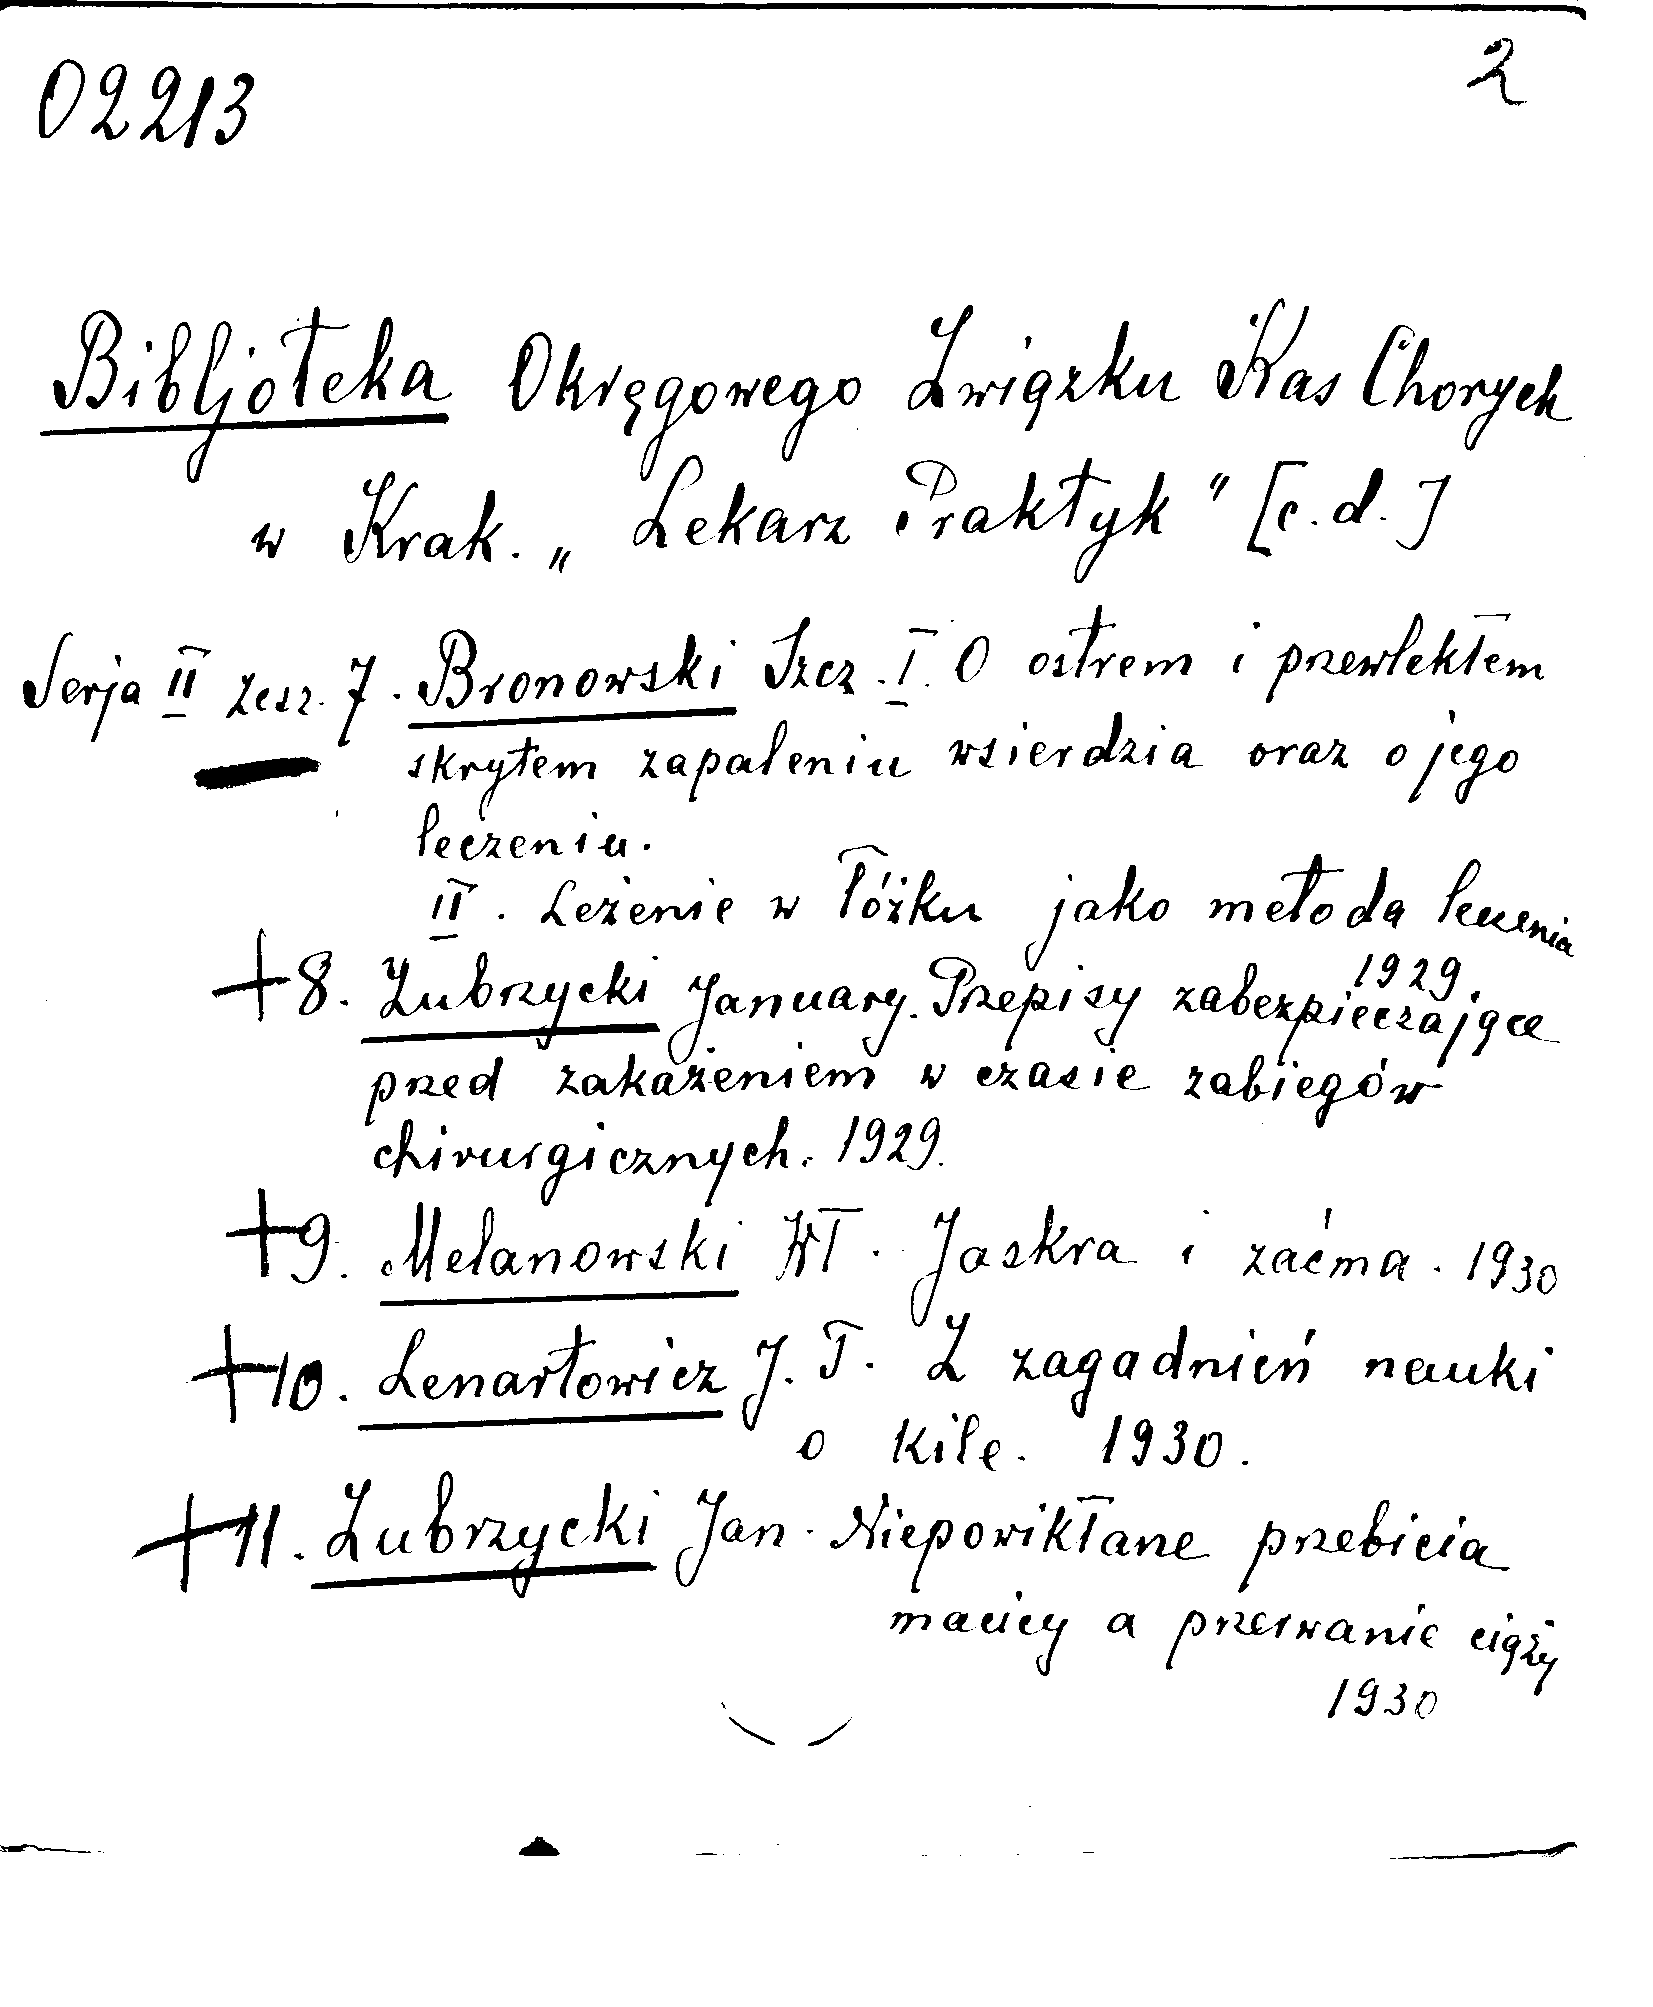 02213
2
Bibljoteka Okręgowego Związku Kas Chorych
w Krak. „Lekarz Praktyk" [c.d.]
Serja II zesz. 7. Bronowski Szcz. I. O ostrem i przewlekłem
skrytem zapaleniu wsierdzia oraz o jego
leczeniu.
II. Leżenie w łóżku jako metoda leczenia
1929.
+8. Zubrzycki January. Przepisy zabezpieczające
przed zakażeniem w czasie zabiegów
chirurgicznych. 1929.
+9. Melanowski Wł. Jaskra i zaćma. 1930
+10. Lenartowicz J. T. Z zagadnień nauki
o kile. 1930.
+11. Zubrzycki Jan. Niepowikłane przebicia
macicy a przerwanie ciąży
1930